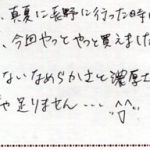 、真夏に長野に行った時に
、今回やっとやっと買えました
ないなめらかさと濃厚さ
や足りません…